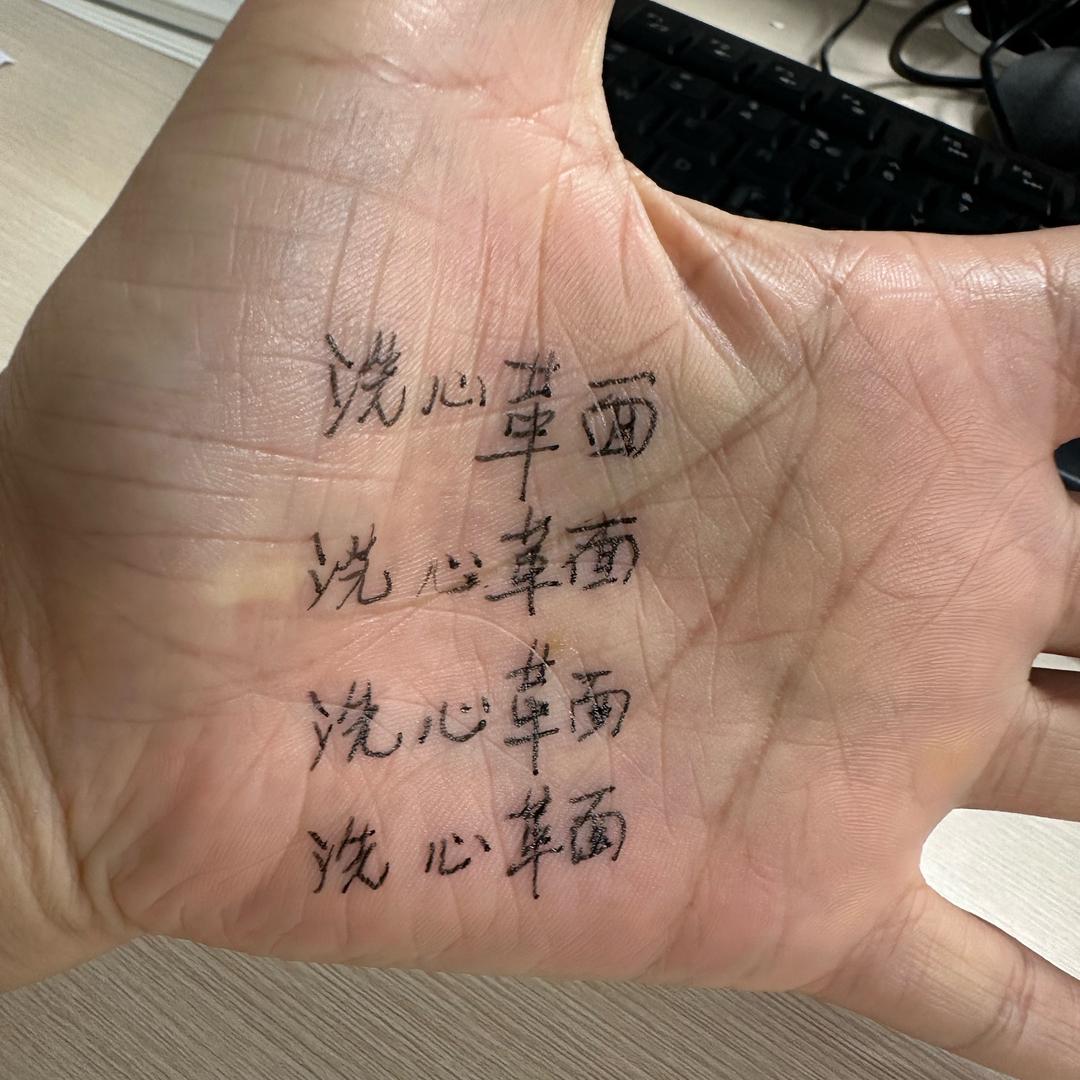 洗心革面
洗心革面
洗心革面
洗心革面